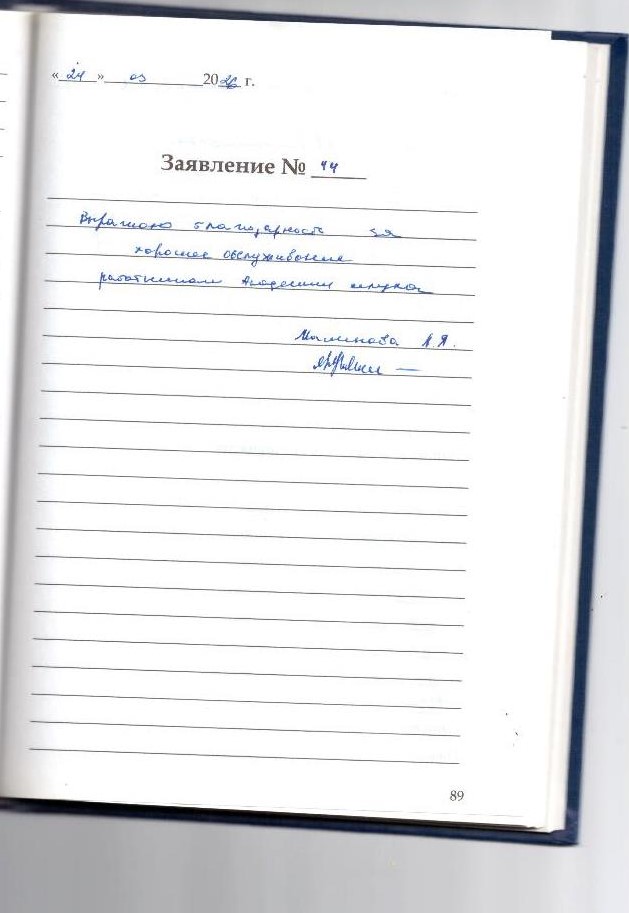 « 24 » 03 2026 г.
Заявление № 44
Выражаю благодарность за
хорошее обслуживание
работникам Академии наук
Малинова Л.Я.
89